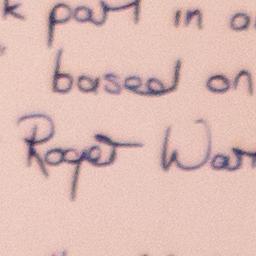 k part in a
based on
Roger War